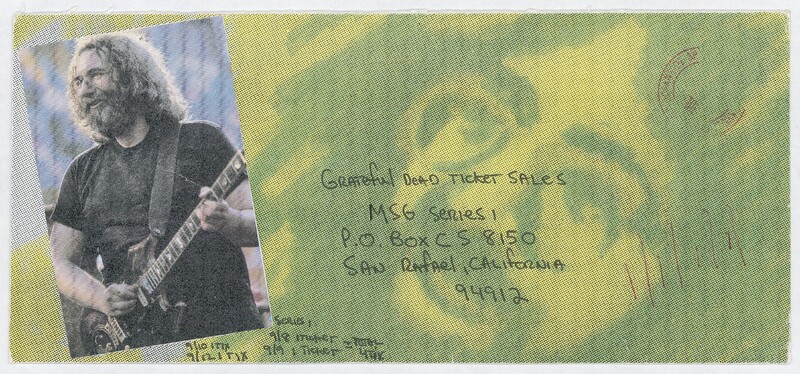 GRATEFUL DEAD TICKET SALES
MSG SERIES 1
P.O. BOX CS 8150
SAN RAFAEL, CALIFORNIA
94912
SERIES 1
9/8 1 TICKET
9/9 1 TICKET
9/10 1 TIX
9/12 1 TIX
= TOTAL
4 TIX